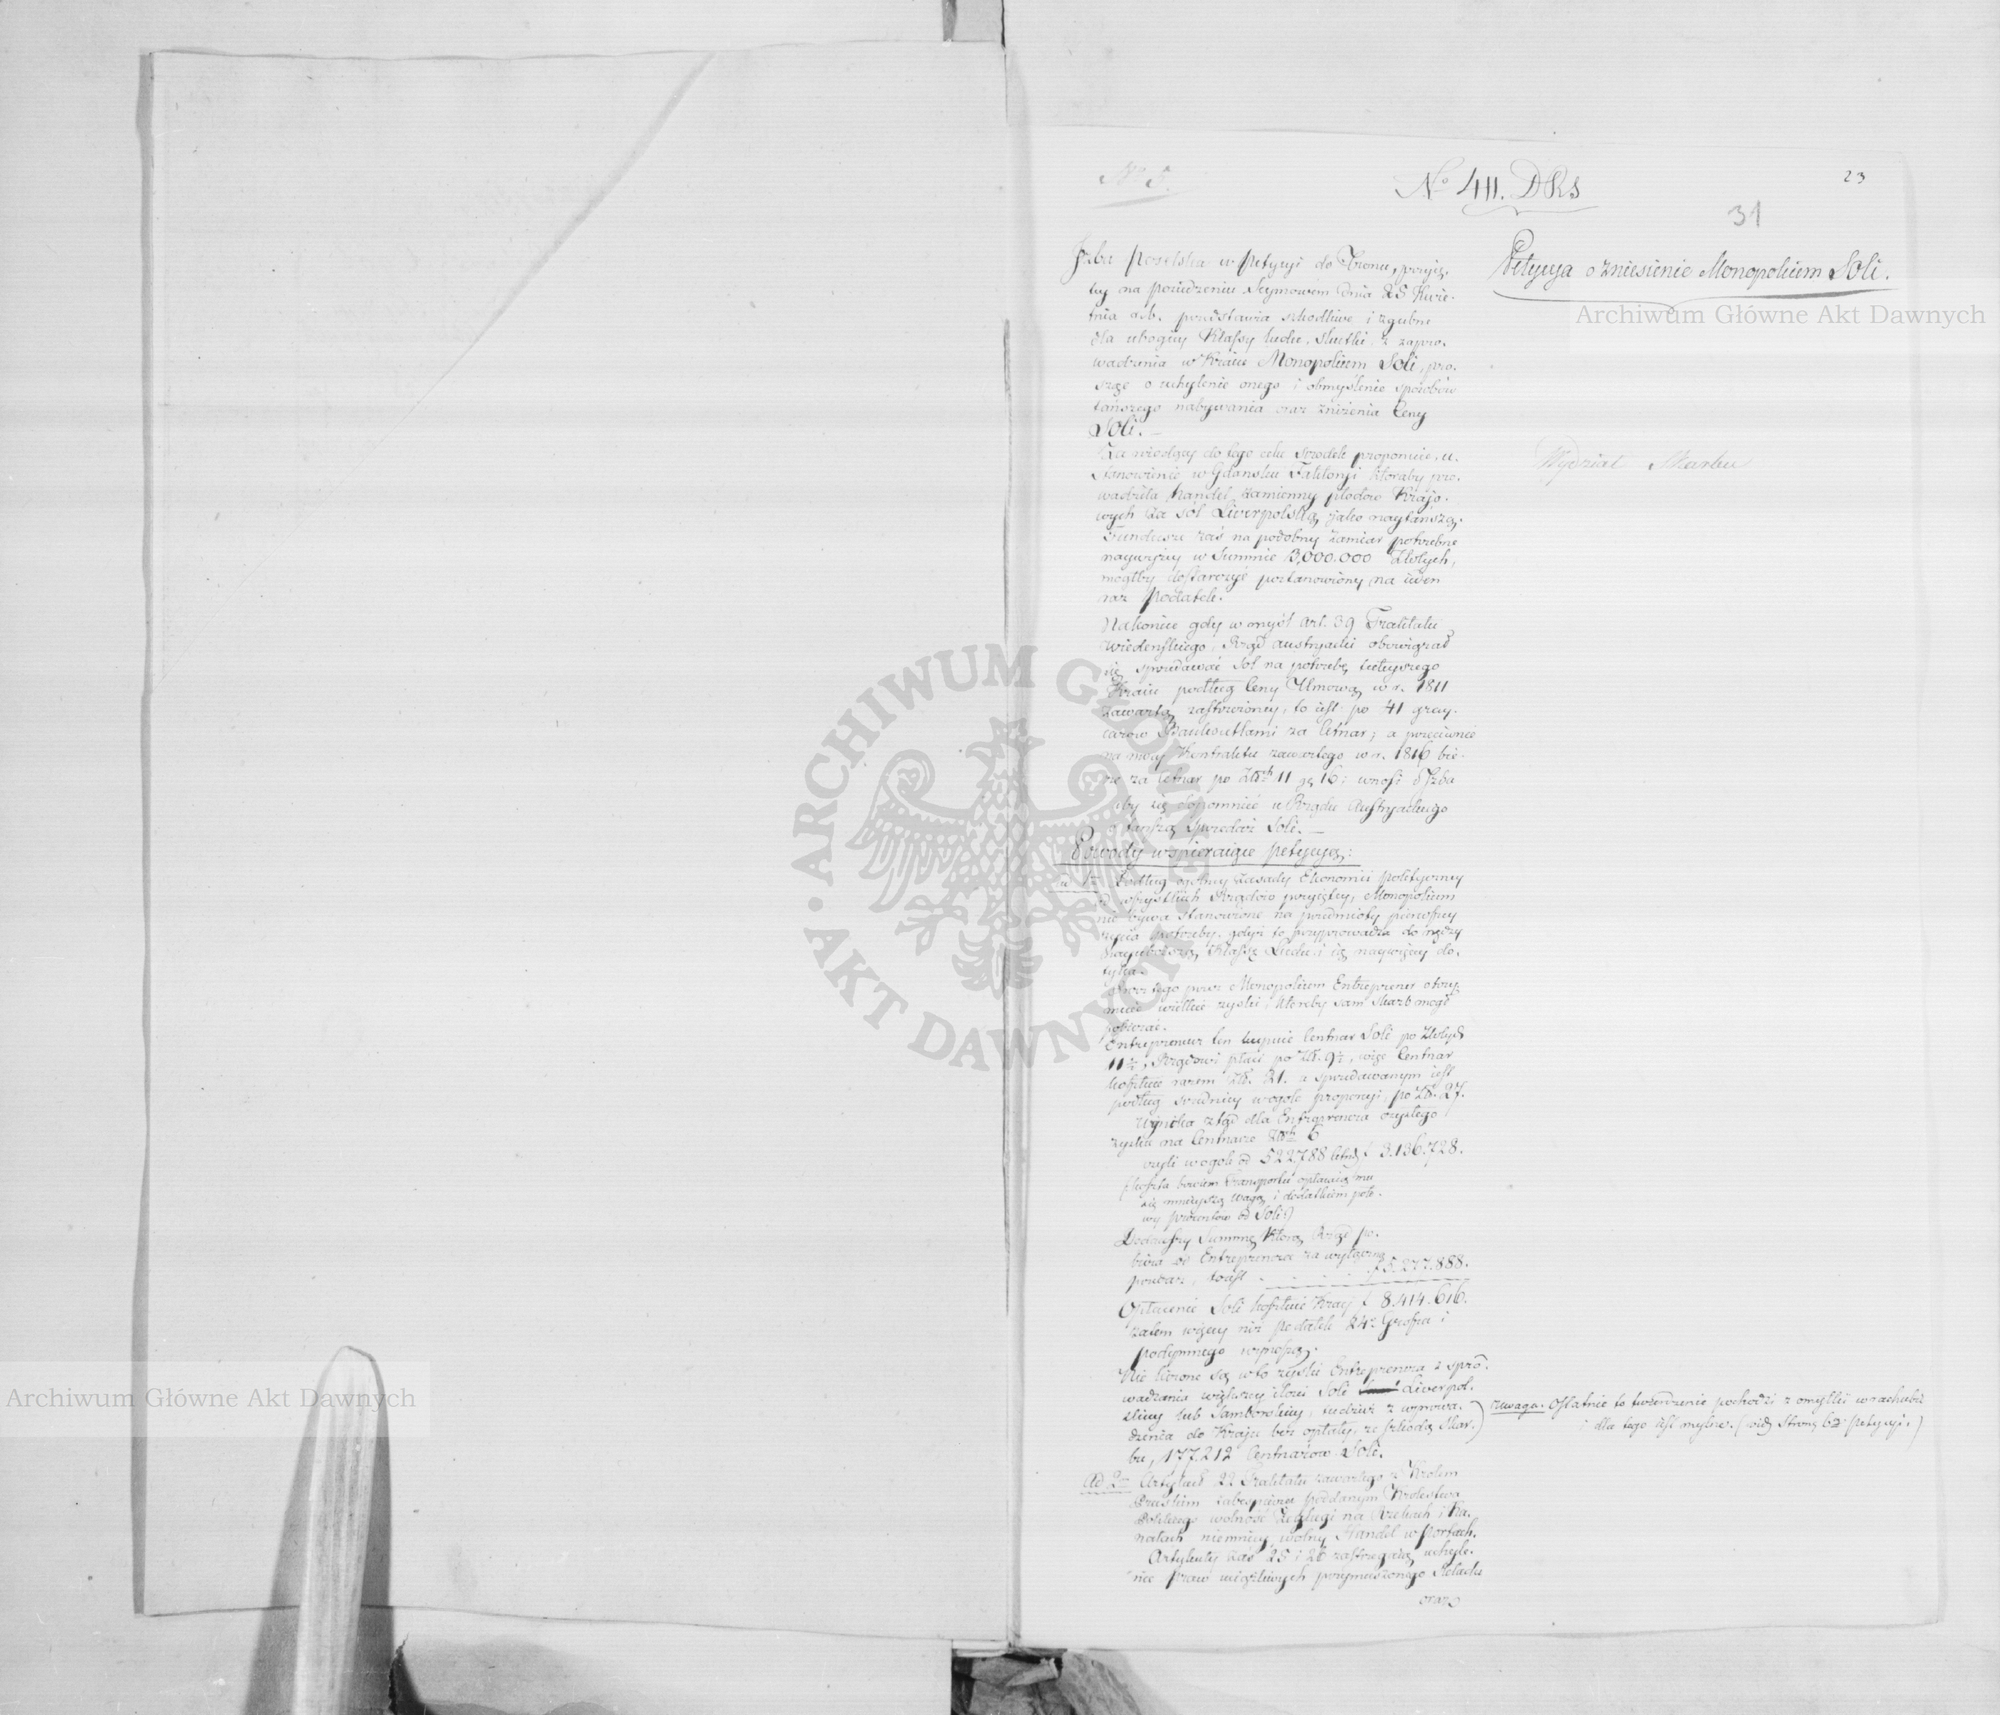 No 5.
No 411. DKS
23
31
Petycya o zniesienie Monopolium Soli.
Wydział Skarbu
Izba Poselska w Petycyi do Tronu, przyię,
tey na posiedzeniu Seymowem dnia 25 Kwie-
tnia r.b. przedstawia szkodliwe i zgubne
dla ubogiey Klassy ludu, skutki, z zapro-
wadzenia w Kraiu Monopolium Soli, pro-
szęc o uchylenie onego i obmyślenie sposobów
tańszego nabywania oraz zniżenia Ceny
Soli. —
Za wiodący do tego celu środek proponuie, u-
stanowienie w Gdańsku Faktoryi któraby pro-
wadziła handel zamienny płodów Krajo-
wych za sól Liverpolską, jako naytańszą.
Fundusze zaś na podobny zamiar potrzebne
naywyżey w Summie 3,000.000 Złotych,
mógłby dostarczyć postanowiony na ieden
raz Podatek.
Nakoniec gdy w myśl Art. 39 Traktatu
wiedenskiego, Rząd austryacki obowiązał
się sprzedawać Sól na potrzebę tutejszego
Kraiu podług Ceny Umową w r. 1811
zawartą zastrzeżoney, to iest po 41 gray-
carów Bankocetlami za Cetnar; a przeciwnie
na mocy Kontraktu zawartego w r. 1816 bie-
rze za Cetnar po Złłch 11 gr 16; wnosi Izba
aby się dopomnieć u Rządu Austryackiego
o tańszą sprzedaż Soli. —
Powody wspieraiące petycyą:
Podług ogólney zasady Ekonomii politycznej
od wszystkich Rządów przyiętey, Monopolium
nie bywa stanowione na przedmioty pierwszey
życia potrzeby, gdyż to przyprowadza do nędzy
nayuboższą Klassę Ludu i iey naywięcey do-
tyka.
Prócz tego przez Monopolium Entreprener otrzy-
muie wielkie zyski, któreby sam Skarb mógł
pobierać.
Entreprener ten kupuie Centnar Soli po Złotych
11½, Rządowi płaci po Zł. 9½, więc Centnar
kosztuie razem Zł. 21. a sprzedawanym iest
podług średniey wogóle proporcyi, po Zł. 27.
Wynika ztąd dla Entreprenera czystego
zysku na Centnarze Złłch 6
czyli wogóle od 522788 Cetn f 3.136.728.
(koszta bowiem Transportu opłacaią mu
się mnieyszą wagą i dodatkiem
procentów od Soli)
Dodawszy Summę którą Rząd po-
biera od Entreprenera za wyłączną
przedaż, to iest . . . . . . f 5.277.888.
Opłacenie Soli kosztuie Kray f 8.414.616.
zatem więcey niż podatek 24go Grosza i
podymnego wynoszą.
Nie liczone są w to zyski Entreprenera z spro-
wadzenia większey ilości Soli Liverpol-
skiey lub Samborskiey, tudzież z wprowa-
dzenia do Kraju bez opłaty, ze szkodą Skar-
bu, 177.212 Centnarów Soli.
uwaga. Ostatnie to twierdzenie pochodzi z omyłki w rachubie
i dla tego iest mylne. (vide Stronę petycyi.)
Ad 2um Artykuł 22 Traktatu zawartego z Królem
Pruskim zabespiecza poddanym Królestwa
Polskiego wolność żeglugi na Rzekach i Ka-
nałach niemniey wolny Handel w Portach.
Artykuły zaś 25 i 26 zastrzegaią uchyle-
nie praw uciążliwych przymuszonego Składu
oraz
Archiwum Główne Akt Dawnych
Archiwum Główne Akt Dawnych
ARCHIWUM GŁÓWNE · AKT DAWNYCH ·